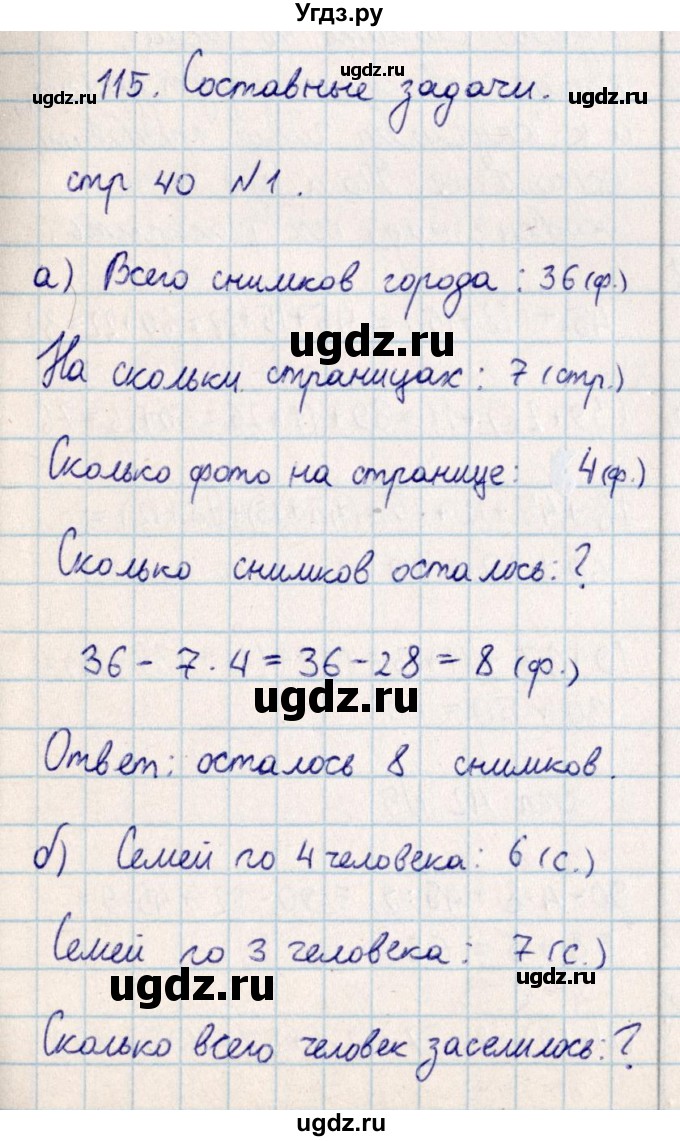 Угдз.ру
ugdz.ru
115. Составные задачи.
ugdz.ru ugdz.ru
стр 40 N1.
а) Всего снимков города : 36 (ф.)
ugdz.ru
На скольки страницах : 7 (стр.)
Сколько фото на странице : 4 (ф.)
Сколько снимков осталось : ?
ugdz.ru
36 - 7 · 4 = 36 - 28 = 8 (ф.)
ugdz.ru
Ответ : осталось 8 снимков.
б) Семей по 4 человека : 6 (с.)
Семей по 3 человека : 7 (с.)
ugdz.ru ugdz.ru
Сколько всего человек заселилось : ?
ugdz.ru